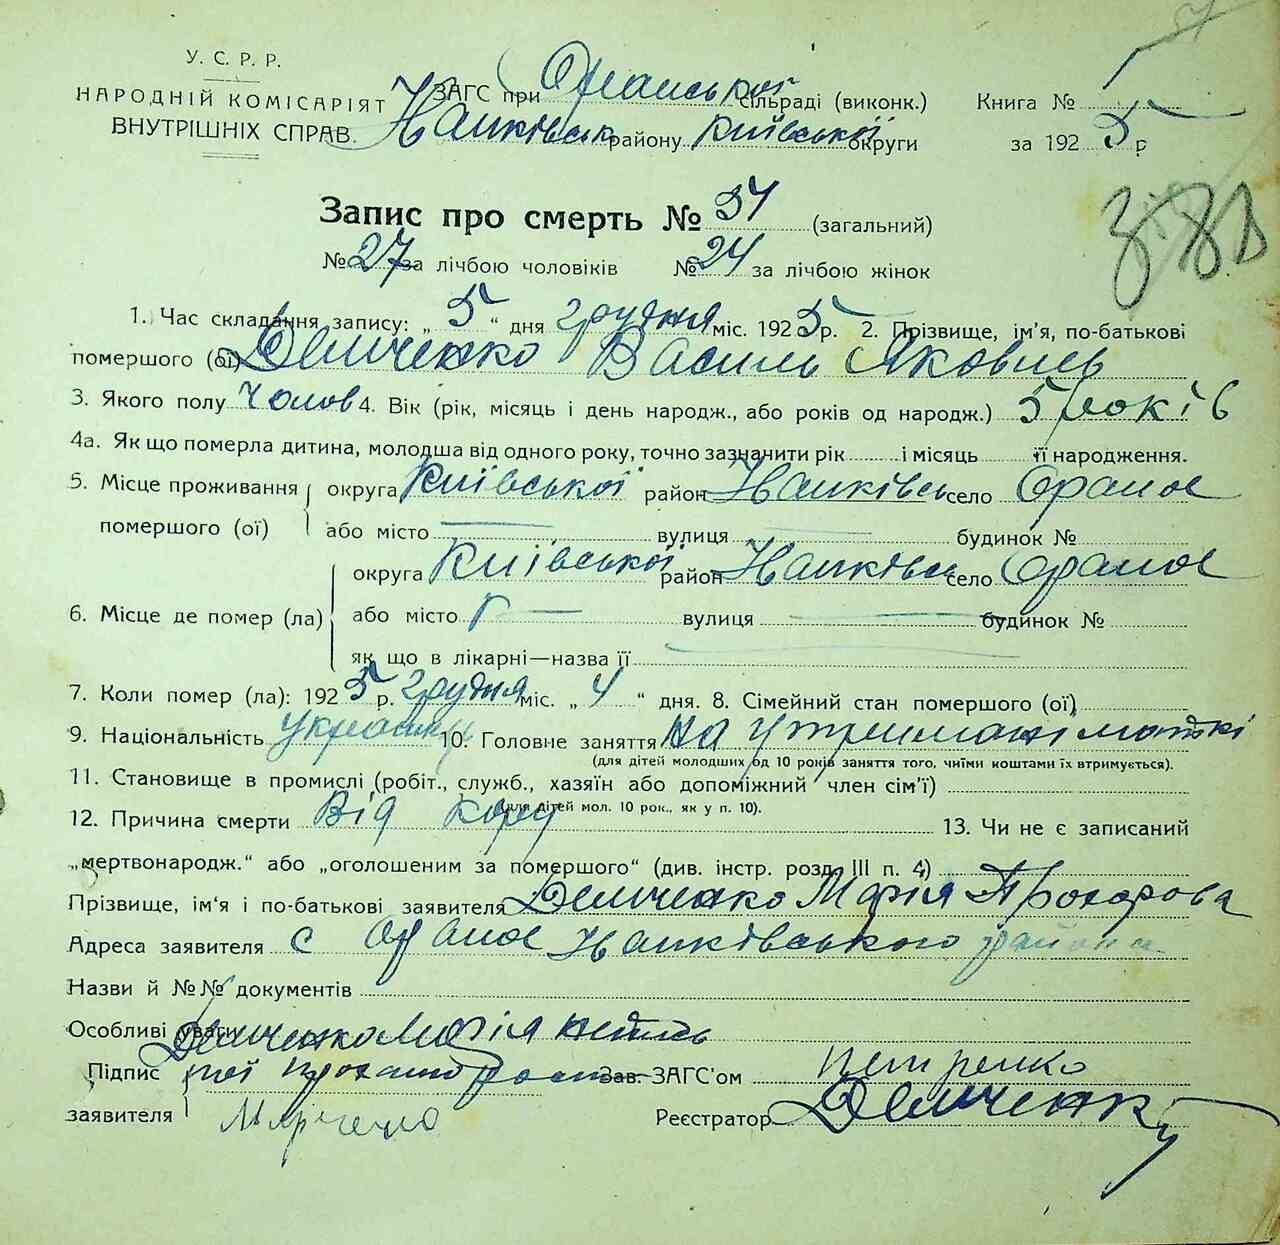 У. С. Р. Р.
НАРОДНІЙ КОМІСАРІЯТ
ВНУТРІШНІХ СПРАВ.
ЗАГС при Оранської сільраді (виконк.)
району Київської округи
Книга №
за 1925 р
Запис про смерть № 51 (загальний)
№ 27 за лічбою чоловіків № 24 за лічбою жінок
1. Час складання запису: „ 5 “ дня грудня міс. 1925 р. 2. Прізвище, ім'я, по-батькові
помершого (ої) Демченко Василь Яковить
3. Якого полу Чолов 4. Вік (рік, місяць і день народж., або років од народж.) 5 років
4а. Як що померла дитина, молодша від одного року, точно зазначити рік і місяць її народження.
5. Місце проживання округа Київської район село Ораное
помершого (ої) або місто вулиця будинок №
округа Київської район село Ораное
6. Місце де помер (ла) або місто вулиця будинок №
як що в лікарні—назва її
7. Коли помер (ла): 1925 р. грудня міс. „ 4 “ дня. 8. Сімейний стан помершого (ої)
9. Національність 10. Головне заняття на утримані матікі
(для дітей молодших од 10 років заняття того, чиїми коштами їх втримується).
11. Становище в промислі (робіт., служб., хазяїн або допоміжний член сім'ї)
(для дітей мол. 10 рок., як у п. 10).
12. Причина смерти Від кору 13. Чи не є записаний
„мертвонародж.“ або „оголошеним за помершого“ (див. інстр. розд. III п. 4)
Прізвище, ім'я і по-батькові заявителя Демченко Марія Прохорова
Адреса заявителя с Ораное района
Назви й №№ документів
Особливі уваги
Демченко Марія
Підпис Зав. ЗАГС'ом Петренко
заявителя Реєстратор Демченко